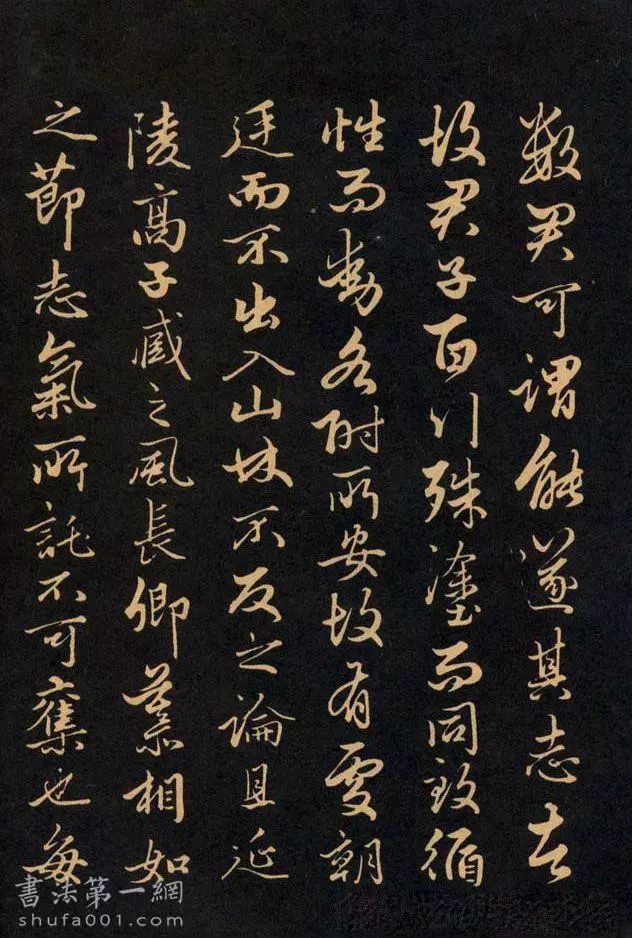 數君可謂能遂其志者
故君子百行殊塗而同致循
性而動各附所安故有處朝
廷而不出入山林不反之論且延
陵高子臧之風長卿慕相如
之節志氣所託不可奪也每
書法第一網
shufa001.com